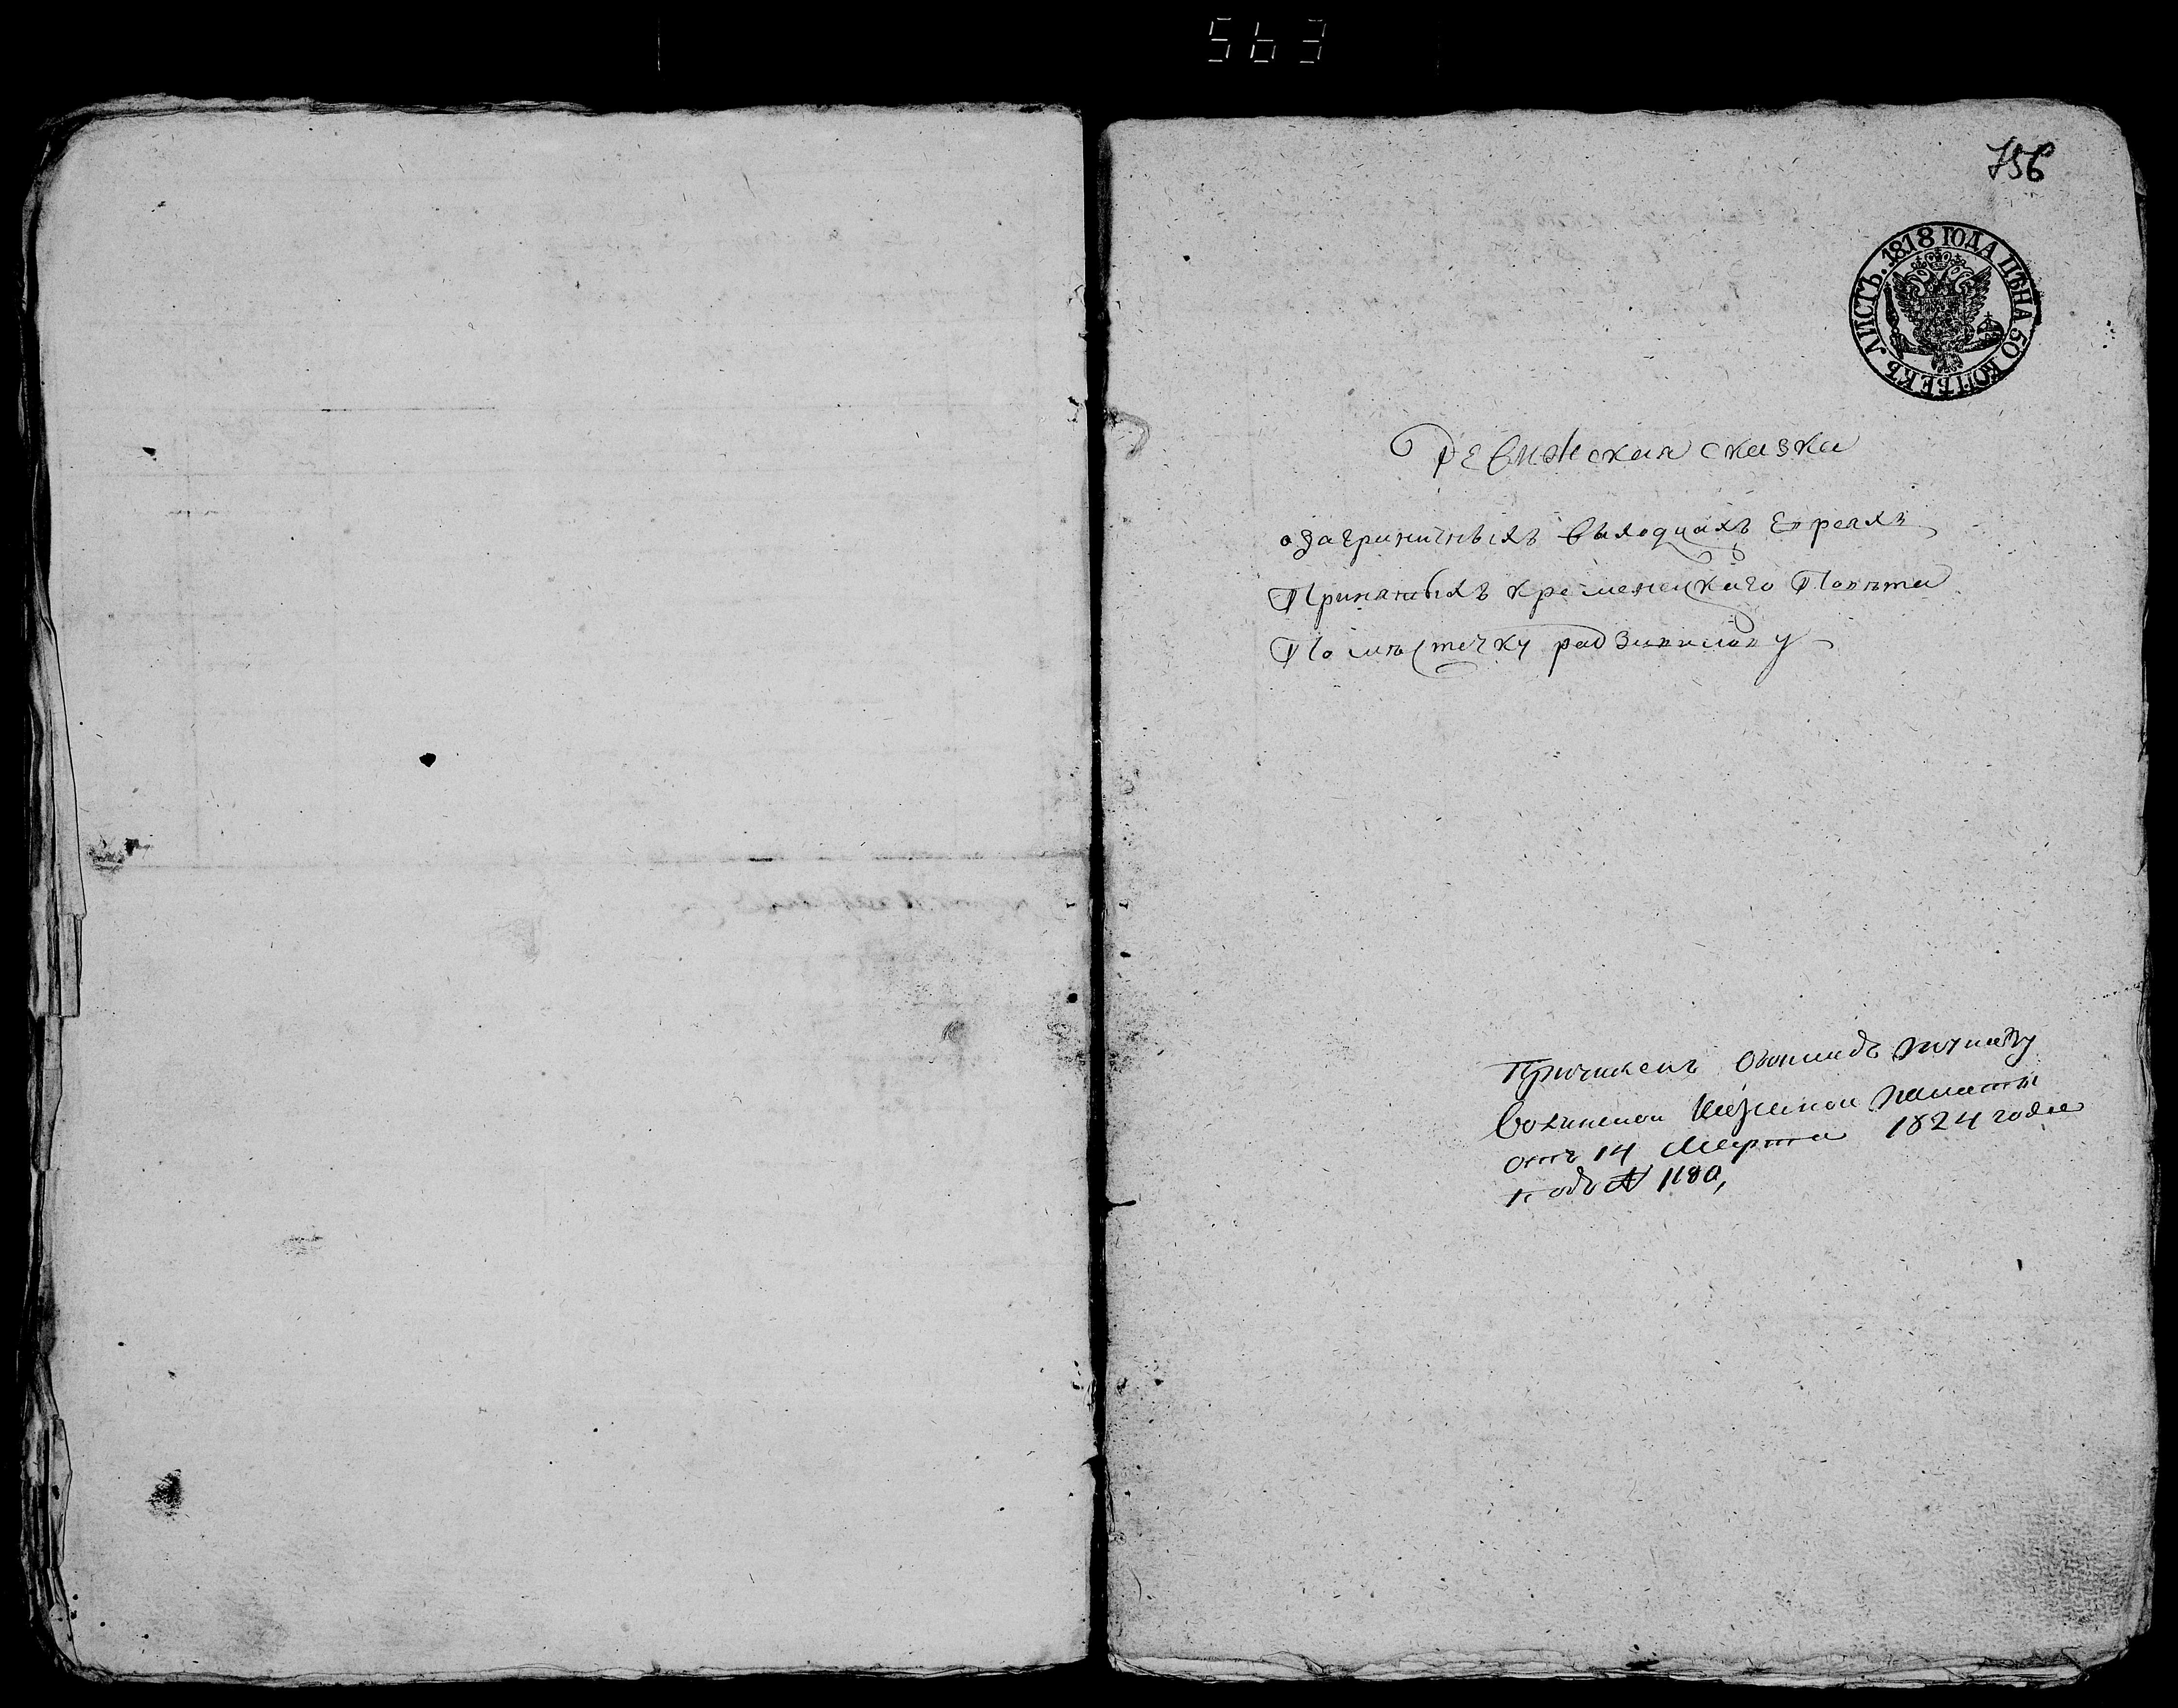 563
756
ЛИСТЪ. 1818 ГОДА ЦѢНА 50 КОПѢЕКЪ
Ревижская сказка
о заграничныхъ выходцахъ Евреахъ
Принятыхъ кременецкаго Повѣта
По мѣстечку радзивилову
Причислены
Волинской Казенной палаты
отъ 14 Марта 1824 года
подъ № 1180,